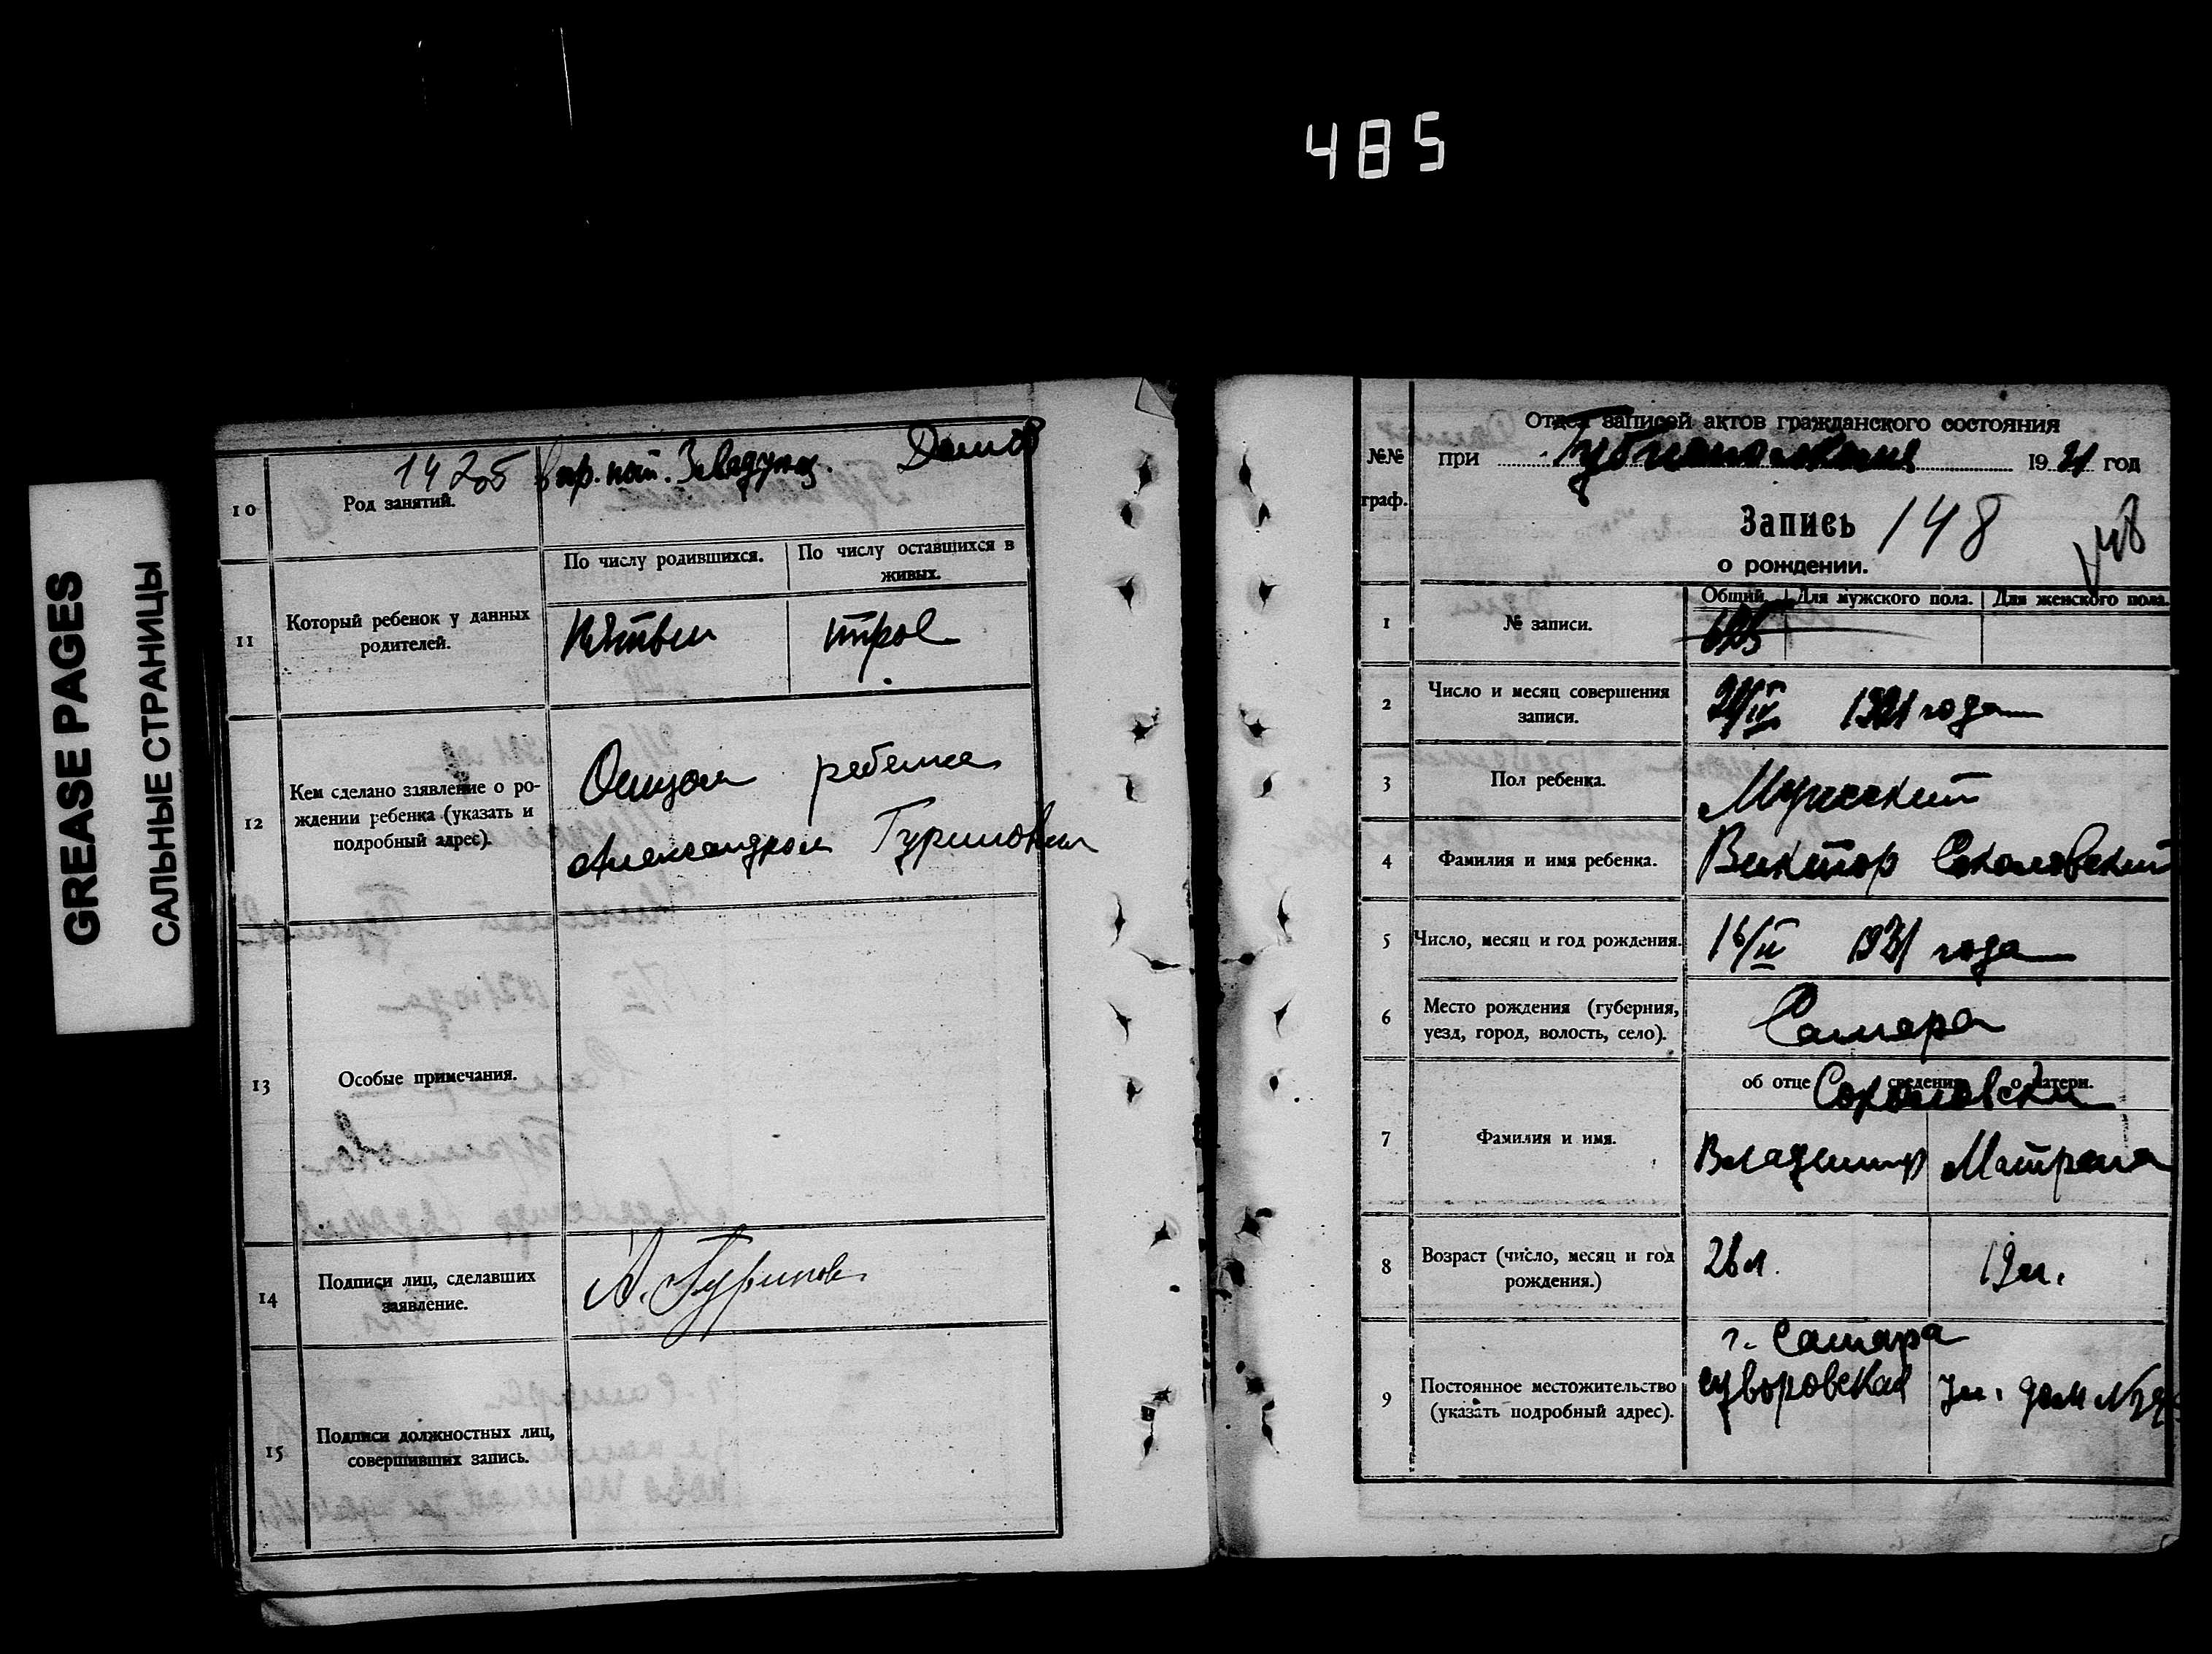 485
GREASE PAGES
САЛЬНЫЕ СТРАНИЦЫ
10
Род занятий.
1425
11
Который ребенок у данных
родителей.
По числу родившихся.
По числу оставшихся в
живых.
трое
12
Кем сделано заявление о ро-
ждении ребенка (указать и
подробный адрес).
Отцом ребенка
Александром Гуриновым
13
Особые примечания.
14
Подписи лиц, сделавших
заявление.
А. Гуринов
15
Подписи должностных лиц,
совершивших запись.
№№
граф.
Отдел записей актов гражданского состояния
при 1921 год
Запись 148
о рождении.
148
1
№ записи.
Общий.
Для мужского пола.
Для женского пола.
2
Число и месяц совершения
записи.
1921 года
3
Пол ребенка.
Мужеский
4
Фамилия и имя ребенка.
Виктор Соколовский
5
Число, месяц и год рождения.
16/II 1921 года
6
Место рождения (губерния,
уезд, город, волость, село).
Самара
об отце сведения о матери.
Соколовски
7
Фамилия и имя.
Владимир
Матрена
8
Возраст (число, месяц и год
рождения.)
26 л.
19 л.
9
Постоянное местожительство
(указать подробный адрес).
г. Самара
Суворовская ул. дом №